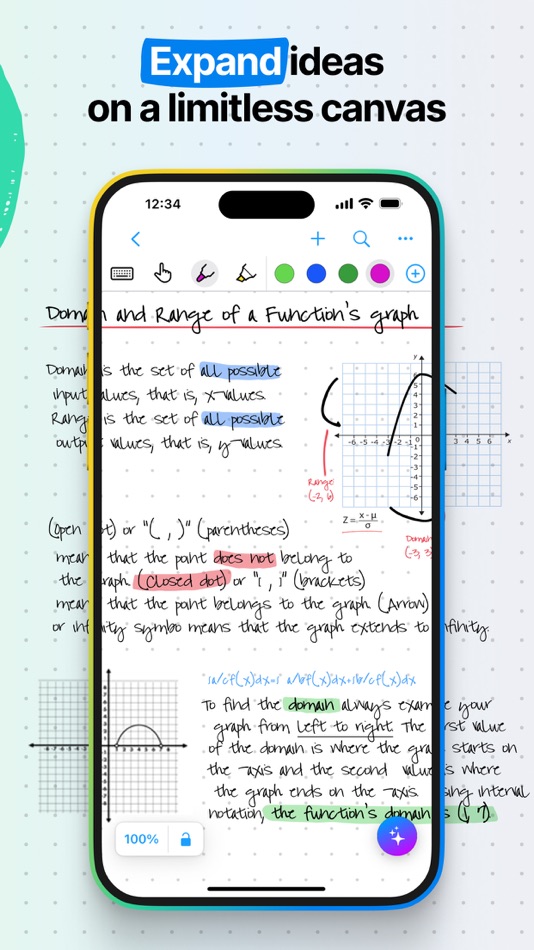 Expand ideas
on a limitless canvas
12:34
Domain and Range of a Function's graph
Domain is the set of all possible
input values, that is, x-values
Range is the set of all possible
output values, that is, y-values
y
6
5
4
3
2
1
-6 -5 -4 -3 -2 -1 0 3 4 5 6 x
Range
(-2, 6)
Z = x - μ
σ
Domain
(-3, 3)
(Open dot) or "( , )" (parentheses)
mean that the point does not belong to
the graph. (Closed dot) or "[ , ]" (brackets)
mean that the point belongs to the graph (Arrow)
or infinity symbo means that the graph extends to infinity.
To find the domain always examine your
graph from left to right. The first value
of the domain is where the graph starts on
the -axis and the second value is where
the graph ends on the -axis. Using interval
notation, the function's domain is (1, 7).
100%